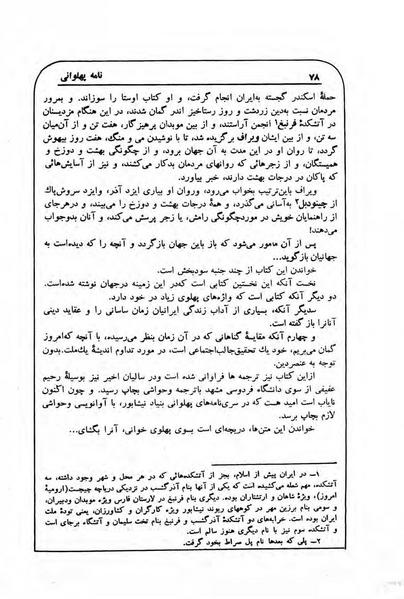 ۷۸
نامه پهلوانی
حملهٔ اسکندر گجسته به‌ایران انجام گرفت، و او کتاب اوستا را سوزاند. و بمرور
مردمان نسبت به‌دین زردشت و روز رستاخیز اندر گمان شدند، در این هنگام مزدیسنان
در آتشکدهٔ فرنبغ۱ انجمن آراستند، و از بین موبدان پرهیزگار، هفت تن و از آن‌میان
سه تن، و از بین ایشان ویراف برگزیده شد، تا با نوشیدن می و منگ، هفت روز بیهوش
گردد، تا روان او در این مدت به آن جهان برود، و از چگونگی بهشت و دوزخ و
همیستگان، و از زجرهائی که روانهای مردمان بدکار می‌کشند، و نیز از آسایش‌هائی
که پاکان در درجات بهشت دارند، خبر بیاورد.
ویراف باین‌ترتیب بخواب می‌رود، وروان او بیاری ایزد آذر، وایزد سروش‌پاك
از چینودپل۲ به‌آسانی می‌گذرد، و همهٔ درجات بهشت و دوزخ را می‌بیند، و درهرجای
از راهنمایان خویش در موردچگونگی رامش، یا زجر پرسش می‌کند، و آنان بدوجواب
می‌دهند.
پس از آن مامور می‌شود که باز باین جهان بازگردد و آنچه را که دیده‌است به
جهانیان بازگوید...
خواندن این کتاب از چند جنبه سودبخش است.
نخست آنکه این نخستین کتابی است که‌در این زمینه درجهان نوشته شده‌است.
دو دیگر آنکه کتابی است که واژه‌های پهلوی زیاد در خود دارد.
سدیگر آنکه، بسیاری از آداب زندگی ایرانیان زمان ساسانی را و عقاید دینی
آنانرا باز گفته است.
و چهارم آنکه مقایسهٔ گناهانی که در آن زمان بنظر می‌رسیده، با آنچه که‌امروز
گمان می‌بریم، خود یك تحقیق‌جالب‌اجتماعی است، در مورد تداوم اندیشهٔ یك‌ملت.بدون
توجه به عنصردین.
ازاین کتاب نیز ترجمه ها فراوانی شده است ودر سالیان اخیر نیز بوسیلهٔ رحیم
عفیفی از سوی دانشگاه فردوسی مشهد باترجمه وحواشی بچاپ رسید. و چون اکنون
نایاب است امید هست که در سری‌نامه‌های پهلوانی بنیاد نیشابور، با آوانویسی وحواشی
لازم بچاپ برسد.
خواندن این متن‌ها، دریچه‌ای است بسوی پهلوی خوانی، آنرا بگشای...
۱– در ایران پیش از اسلام، بجز از آتشکده‌هائی که در هر محل و شهر وجود داشته، سه
آتشکده، مهم شعله می‌کشیده است که یکی از آنها بنام آذرگشسب در نزدیکی دریاچه چیچست(ارومیهٔ
امروز)، ویژهٔ شاهان و ارتشتاران بوده. دیگری بنام فرنبغ در لارستان فارس ویژه موبدان ودبیران،
و سومی بنام برزین مهر در کوههای ریوند نیشابور ویژه کارگران و کشاورزان، یعنی تودهٔ ملت
ایران بوده است. خرابه‌های دو آتشکدهٔ آذرگشسب و فرنبغ بنام تخت سلیمان و آتشگاه برجای است
و آتشکده سوم نیز با نام دیگری هنوز سالم است.
۲– پلی که بعدها نام پل صراط بخود گرفت.